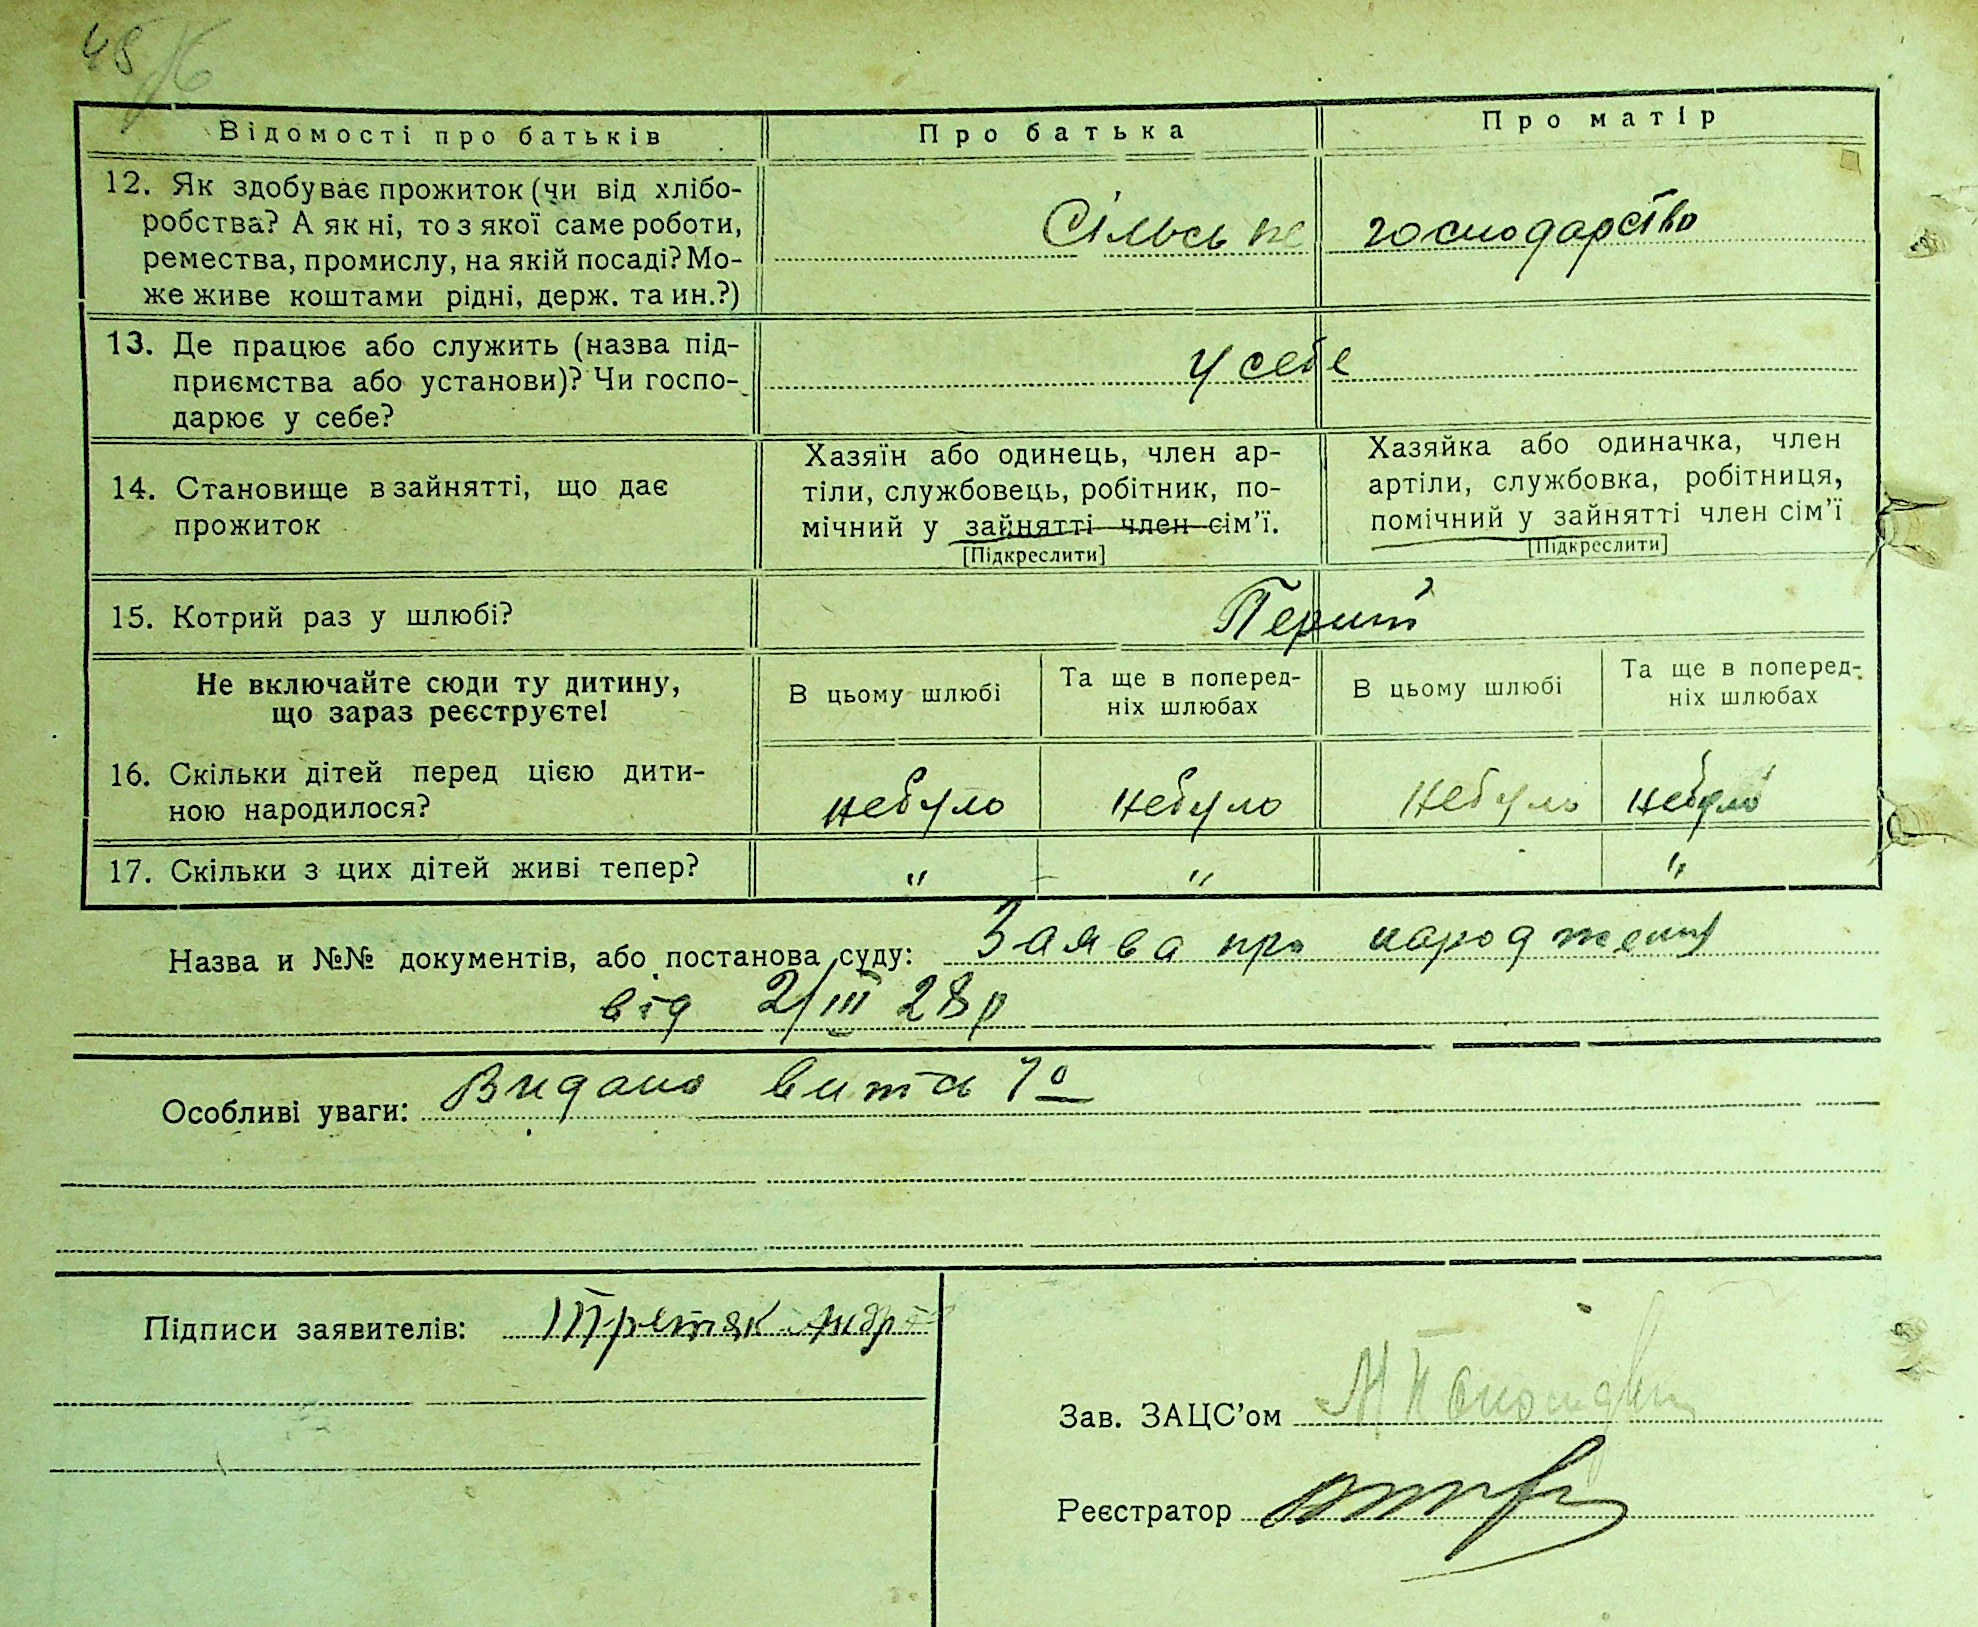 48
Відомості про батьків
Про батька
Про матір
12. Як здобуває прожиток (чи від хлібо-
робства? А як ні, то з якої саме роботи,
ремества, промислу, на якій посаді? Мо-
же живе коштами рідні, держ. та ин.?)
Сільське господарство
13. Де працює або служить (назва під-
приємства або установи)? Чи госпо-
дарює у себе?
у себе
14. Становище в зайнятті, що дає
прожиток
Хазяїн або одинець, член ар-
тіли, службовець, робітник, по-
мічний у зайнятті член сім'ї.
[Підкреслити]
Хазяйка або одиначка, член
артіли, службовка, робітниця,
помічний у зайнятті член сім'ї
[Підкреслити]
15. Котрий раз у шлюбі?
Перший
Не включайте сюди ту дитину,
що зараз реєструєте!
В цьому шлюбі
Та ще в поперед-
ніх шлюбах
В цьому шлюбі
Та ще в поперед-
ніх шлюбах
16. Скільки дітей перед цією дити-
ною народилося?
небуло небуло небуло небуло
17. Скільки з цих дітей живі тепер?
" " "
Назва и №№ документів, або постанова суду: Заява про народження
від 2/III 28 р
Особливі уваги: Видано
Підписи заявителів: Третяк
Зав. ЗАЦС'ом
Реєстратор